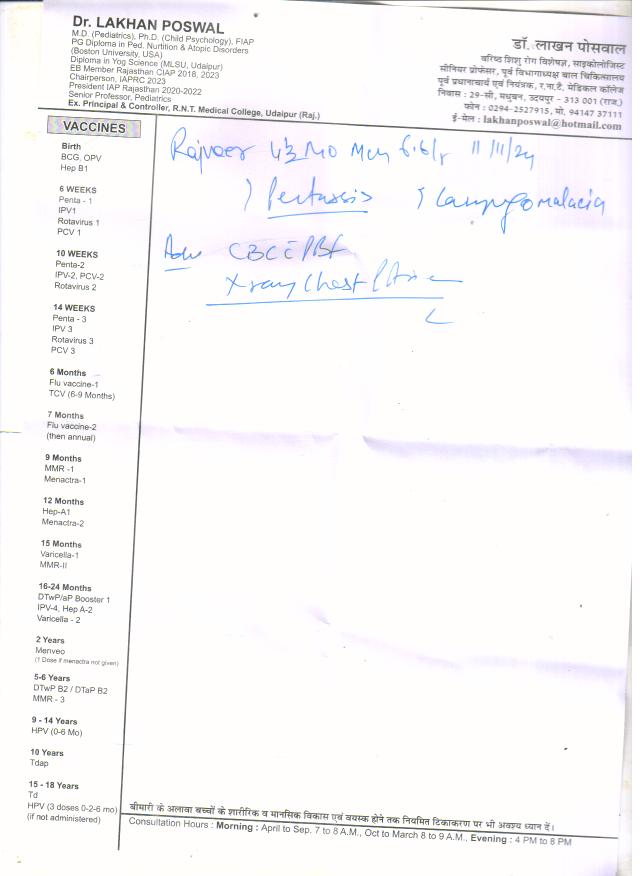 Dr. LAKHAN POSWAL
M.D. (Pediatrics), Ph.D. (Child Psychology), FIAP
PG Diploma in Ped. Nurtition & Atopic Disorders
(Boston University, USA)
Diploma in Yog Science (MLSU, Udaipur)
EB Member Rajasthan CIAP 2018, 2023
Chairperson, IAPRC 2023
President IAP Rajasthan 2020-2022
Senior Professor, Pediatrics
Ex. Principal & Controller, R.N.T. Medical College, Udaipur (Raj.)
डॉ. लाखन पोसवाल
वरिष्ठ शिशु रोग विशेषज्ञ, साइकोलोजिस्ट
सीनियर प्रोफेसर, पूर्व विभागाध्यक्ष बाल चिकित्सालय
पूर्व प्रधानाचार्य एवं नियंत्रक, र.ना.टै. मेडिकल कॉलेज
निवास : 29-सी, मधुबन, उदयपुर - 313 001 (राज.)
फोन : 0294-2527915, मो. 94147 37111
ई-मेल : lakhanposwal@hotmail.com
VACCINES
Birth
BCG, OPV
Hep B1
6 WEEKS
Penta - 1
IPV1
Rotavirus 1
PCV 1
10 WEEKS
Penta-2
IPV-2, PCV-2
Rotavirus 2
14 WEEKS
Penta - 3
IPV 3
Rotavirus 3
PCV 3
6 Months
Flu vaccine-1
TCV (6-9 Months)
7 Months
Flu vaccine-2
(then annual)
9 Months
MMR -1
Menactra-1
12 Months
Hep-A1
Menactra-2
15 Months
Varicella-1
MMR-II
16-24 Months
DTwP/aP Booster 1
IPV-4, Hep A-2
Varicella - 2
2 Years
Menveo
(1 Dose if menactra not given)
5-6 Years
DTwP B2 / DTaP B2
MMR - 3
9 - 14 Years
HPV (0-6 Mo)
10 Years
Tdap
15 - 18 Years
Td
HPV (3 doses 0-2-6 mo)
(if not administered)
Rajveer 4½ Mo 11/11/24
Pertussis ? Laryngomalacia
Adv CBC c̄ PBF
X-ray Chest
बीमारी के अलावा बच्चों के शारीरिक व मानसिक विकास एवं वयस्क होने तक नियमित टिकाकरण पर भी अवश्य ध्यान दें।
Consultation Hours : Morning : April to Sep. 7 to 8 A.M., Oct to March 8 to 9 A.M., Evening : 4 PM to 8 PM